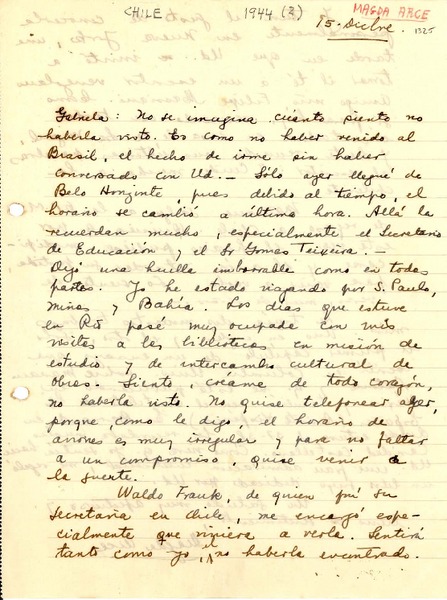 CHILE 1944 (?) MAGDA ARCE
15. Dicbre. 1325
Gabriela: No se imagina cuánto siento no
haberla visto. Es como no haber venido al
Brasil, el hecho de irme sin haber
conversado con Ud. — Sólo ayer llegué de
Belo Horizonte, pues debido al tiempo, el
horario se cambió a última hora. Allá la
recuerdan mucho, especialmente el Secretario
de Educación y el Sr Gomes Teixeira. —
Dejó una huella imborrable como en todas
partes. Yo he estado viajando por S. Paulo,
Minas y Bahía. Los días que estuve
en Río pasé muy ocupada con mis
visitas a las bibliotecas en misión de
estudio y de intercambio cultural de
obras. Siento, créame de todo corazón,
no haberla visto. No quise telefonear ayer,
porque, como le digo, el horario de
aviones es muy irregular y para no faltar
a un compromiso, quise venir a
la suerte.
Waldo Frank, de quien fuí su
secretaria en Chile, me encargó espe-
cialmente que viniera a verla. Sentirá
tanto como yo el no haberla encontrado.